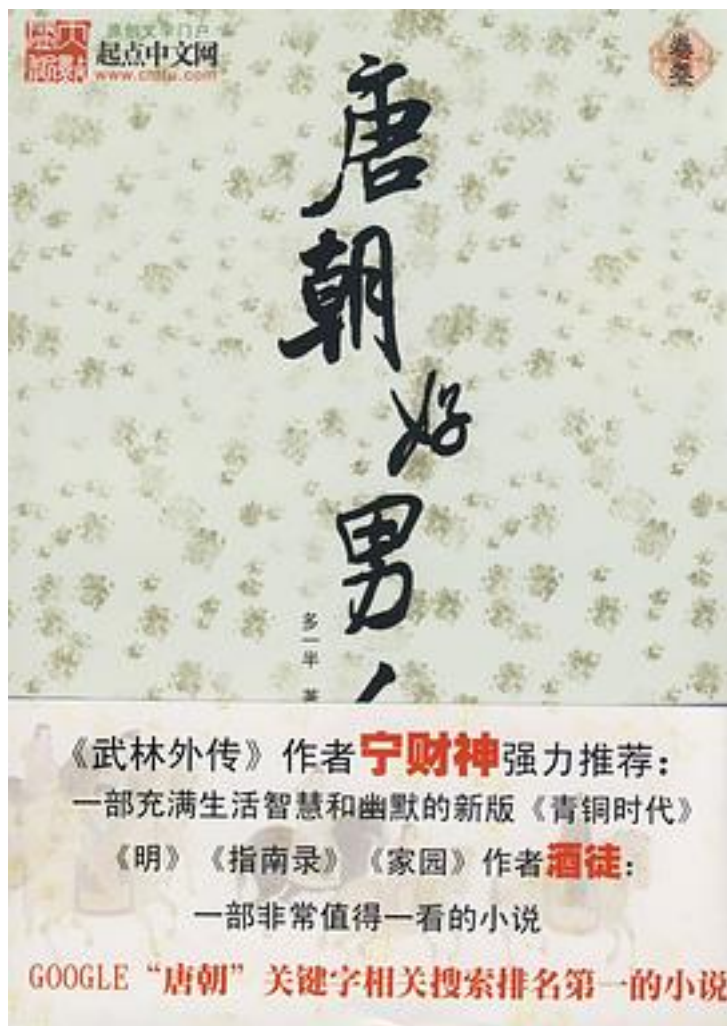 原创文学门户
起点中文网
www.cmfu.com
卷叁
唐朝好男
多一半 著
《武林外传》作者宁财神强力推荐：
一部充满生活智慧和幽默的新版《青铜时代》
《明》《指南录》《家园》作者酒徒：
一部非常值得一看的小说
GOOGLE“唐朝”关键字相关搜索排名第一的小说